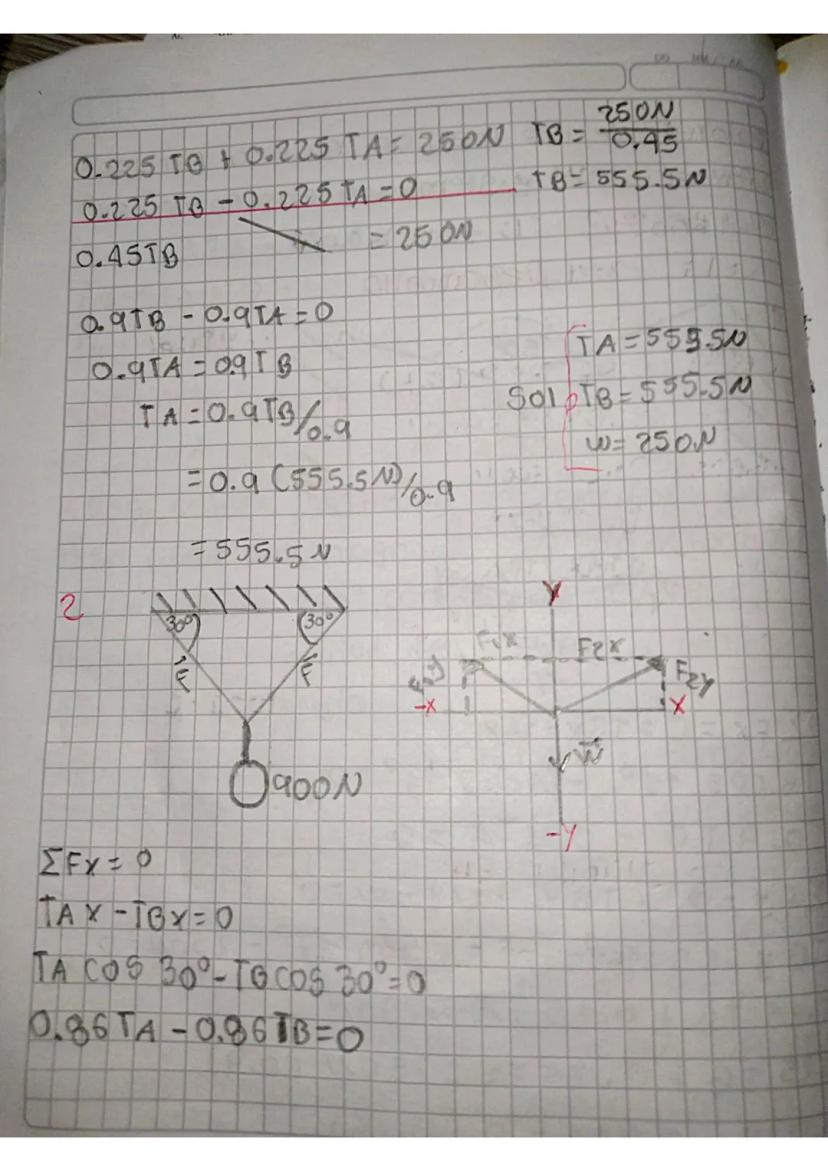 0.225 TB + 0.225 TA = 250N
TB = 250N/0.45
0.225 TB - 0.225 TA = 0
TB = 555.5N
0.45TB = 250N
0.9TB - 0.9TA = 0
0.9TA = 0.9TB
TA = 0.9TB/0.9
= 0.9 (555.5N)/0.9
= 555.5N
TA = 555.5N
Sol TB = 555.5N
W = 250N
2
30° 30°
F F
900N
Y
F1x F2x
F1y F2y
-X X
W
-Y
ΣFx = 0
TAx - TBx = 0
TA COS 30° - TB COS 30° = 0
0.86TA - 0.86TB = 0